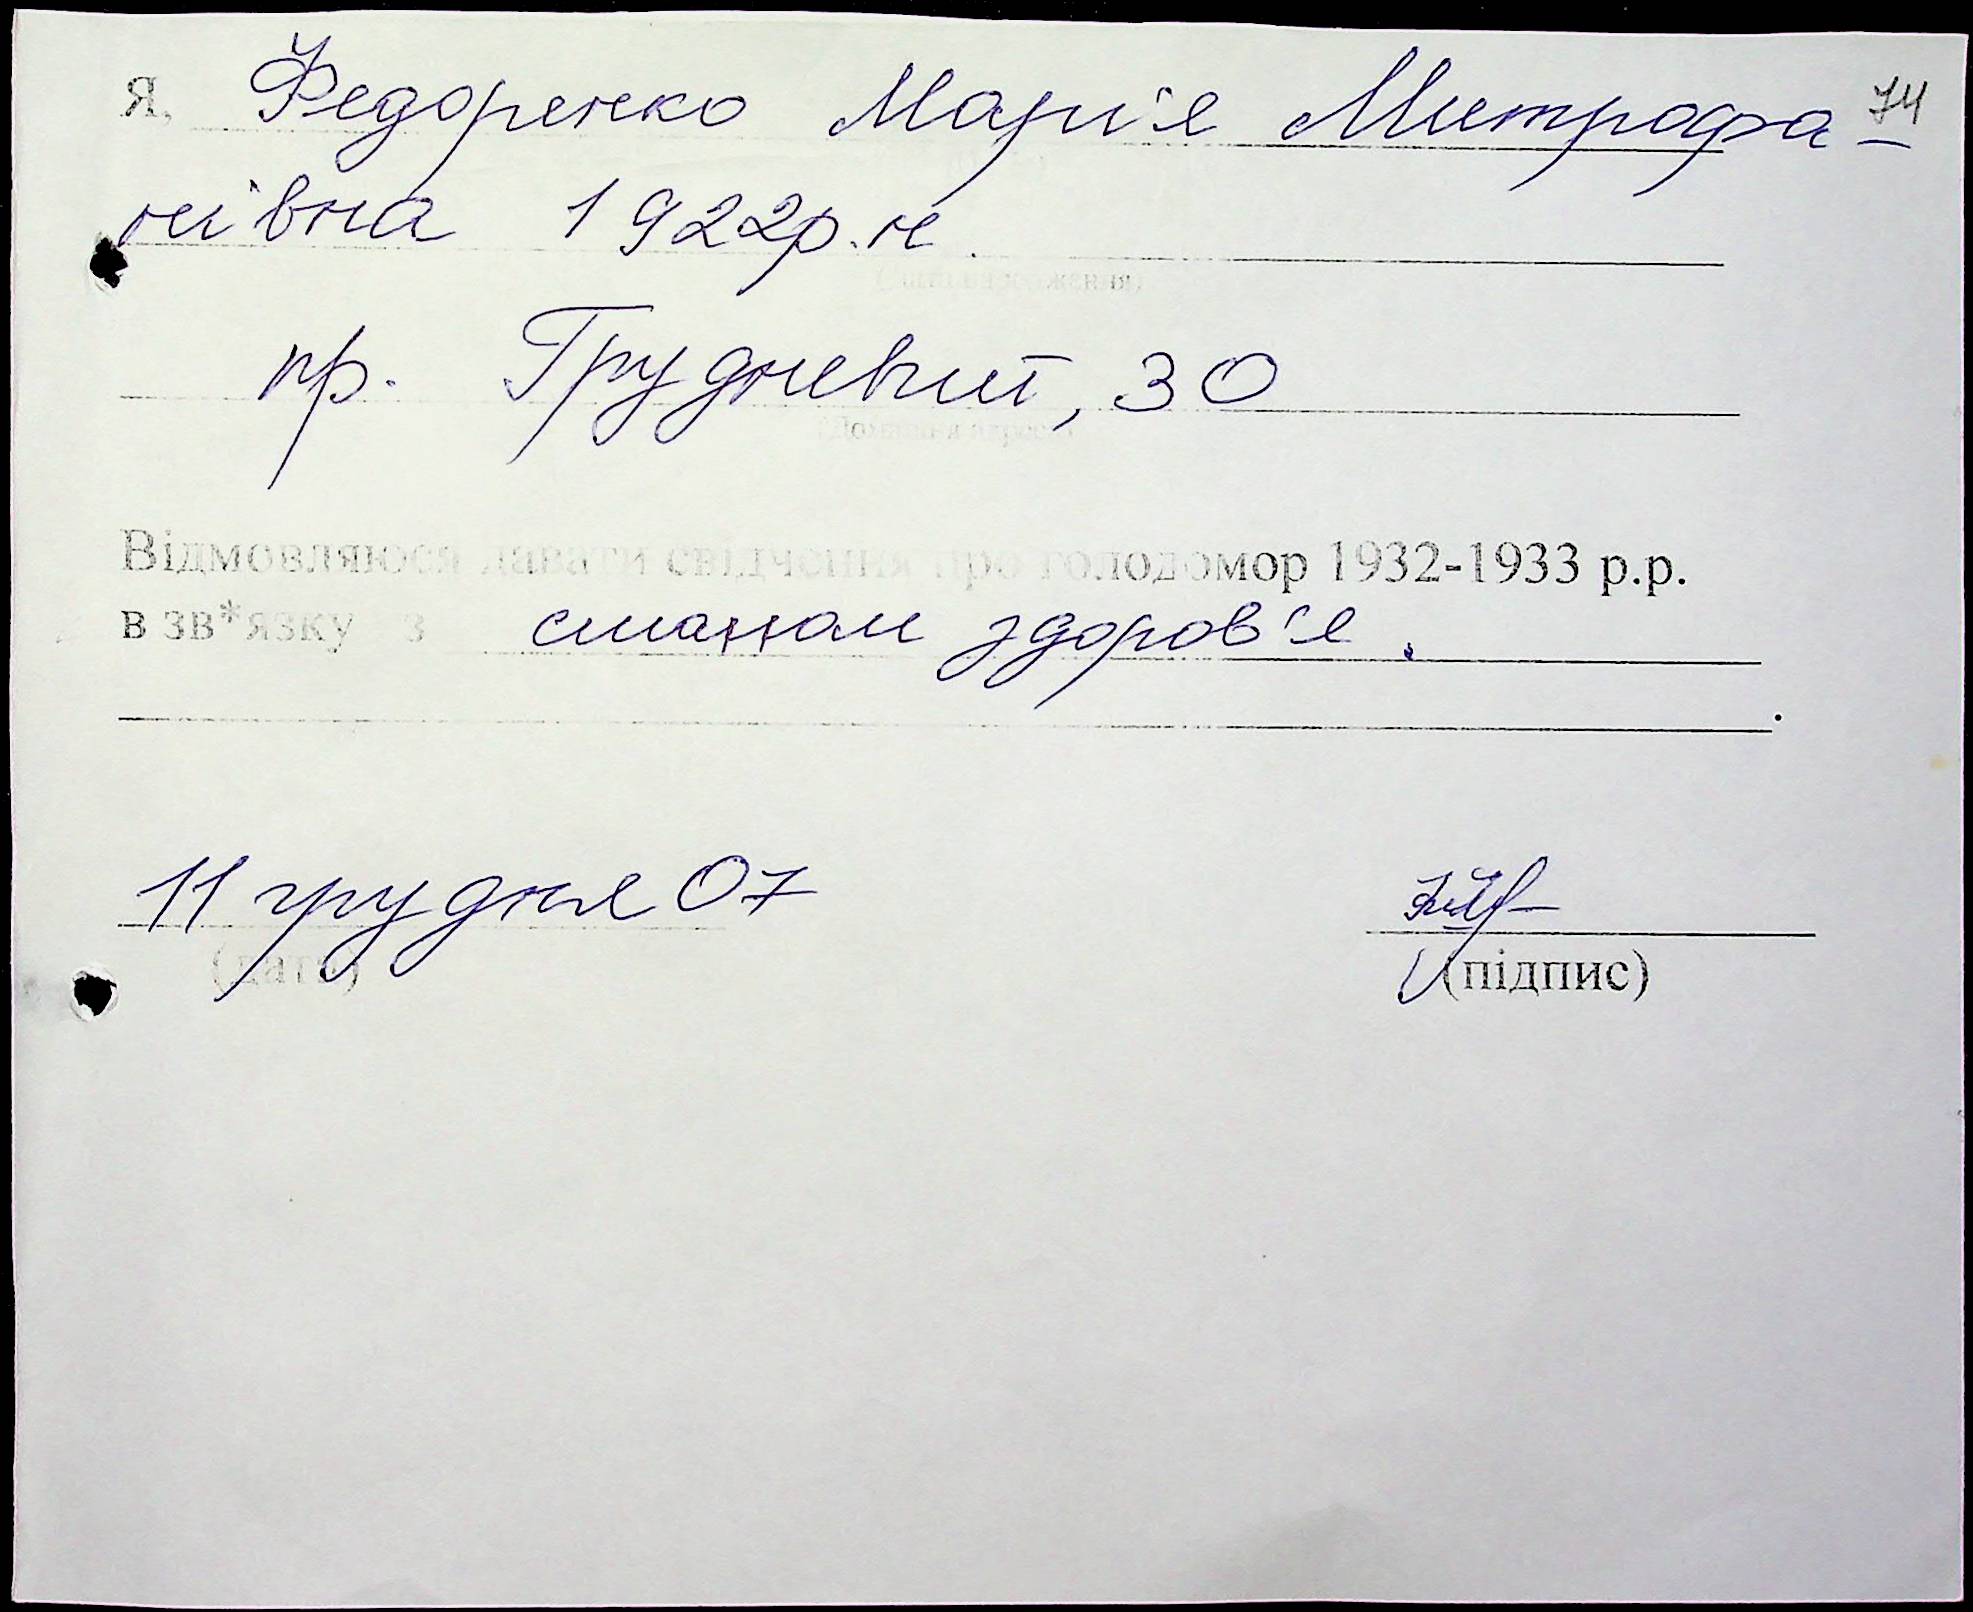 74
Я, Федоренко Марія Митрофа-
нівна 1922р.н.
(дата народження)
пр. Грудневий, 30
(Домашня адреса)
Відмовляюся давати свідчення про голодомор 1932-1933 р.р.
в зв*язку з станом здоров'я.
11 грудня 07
(дата) (підпис)